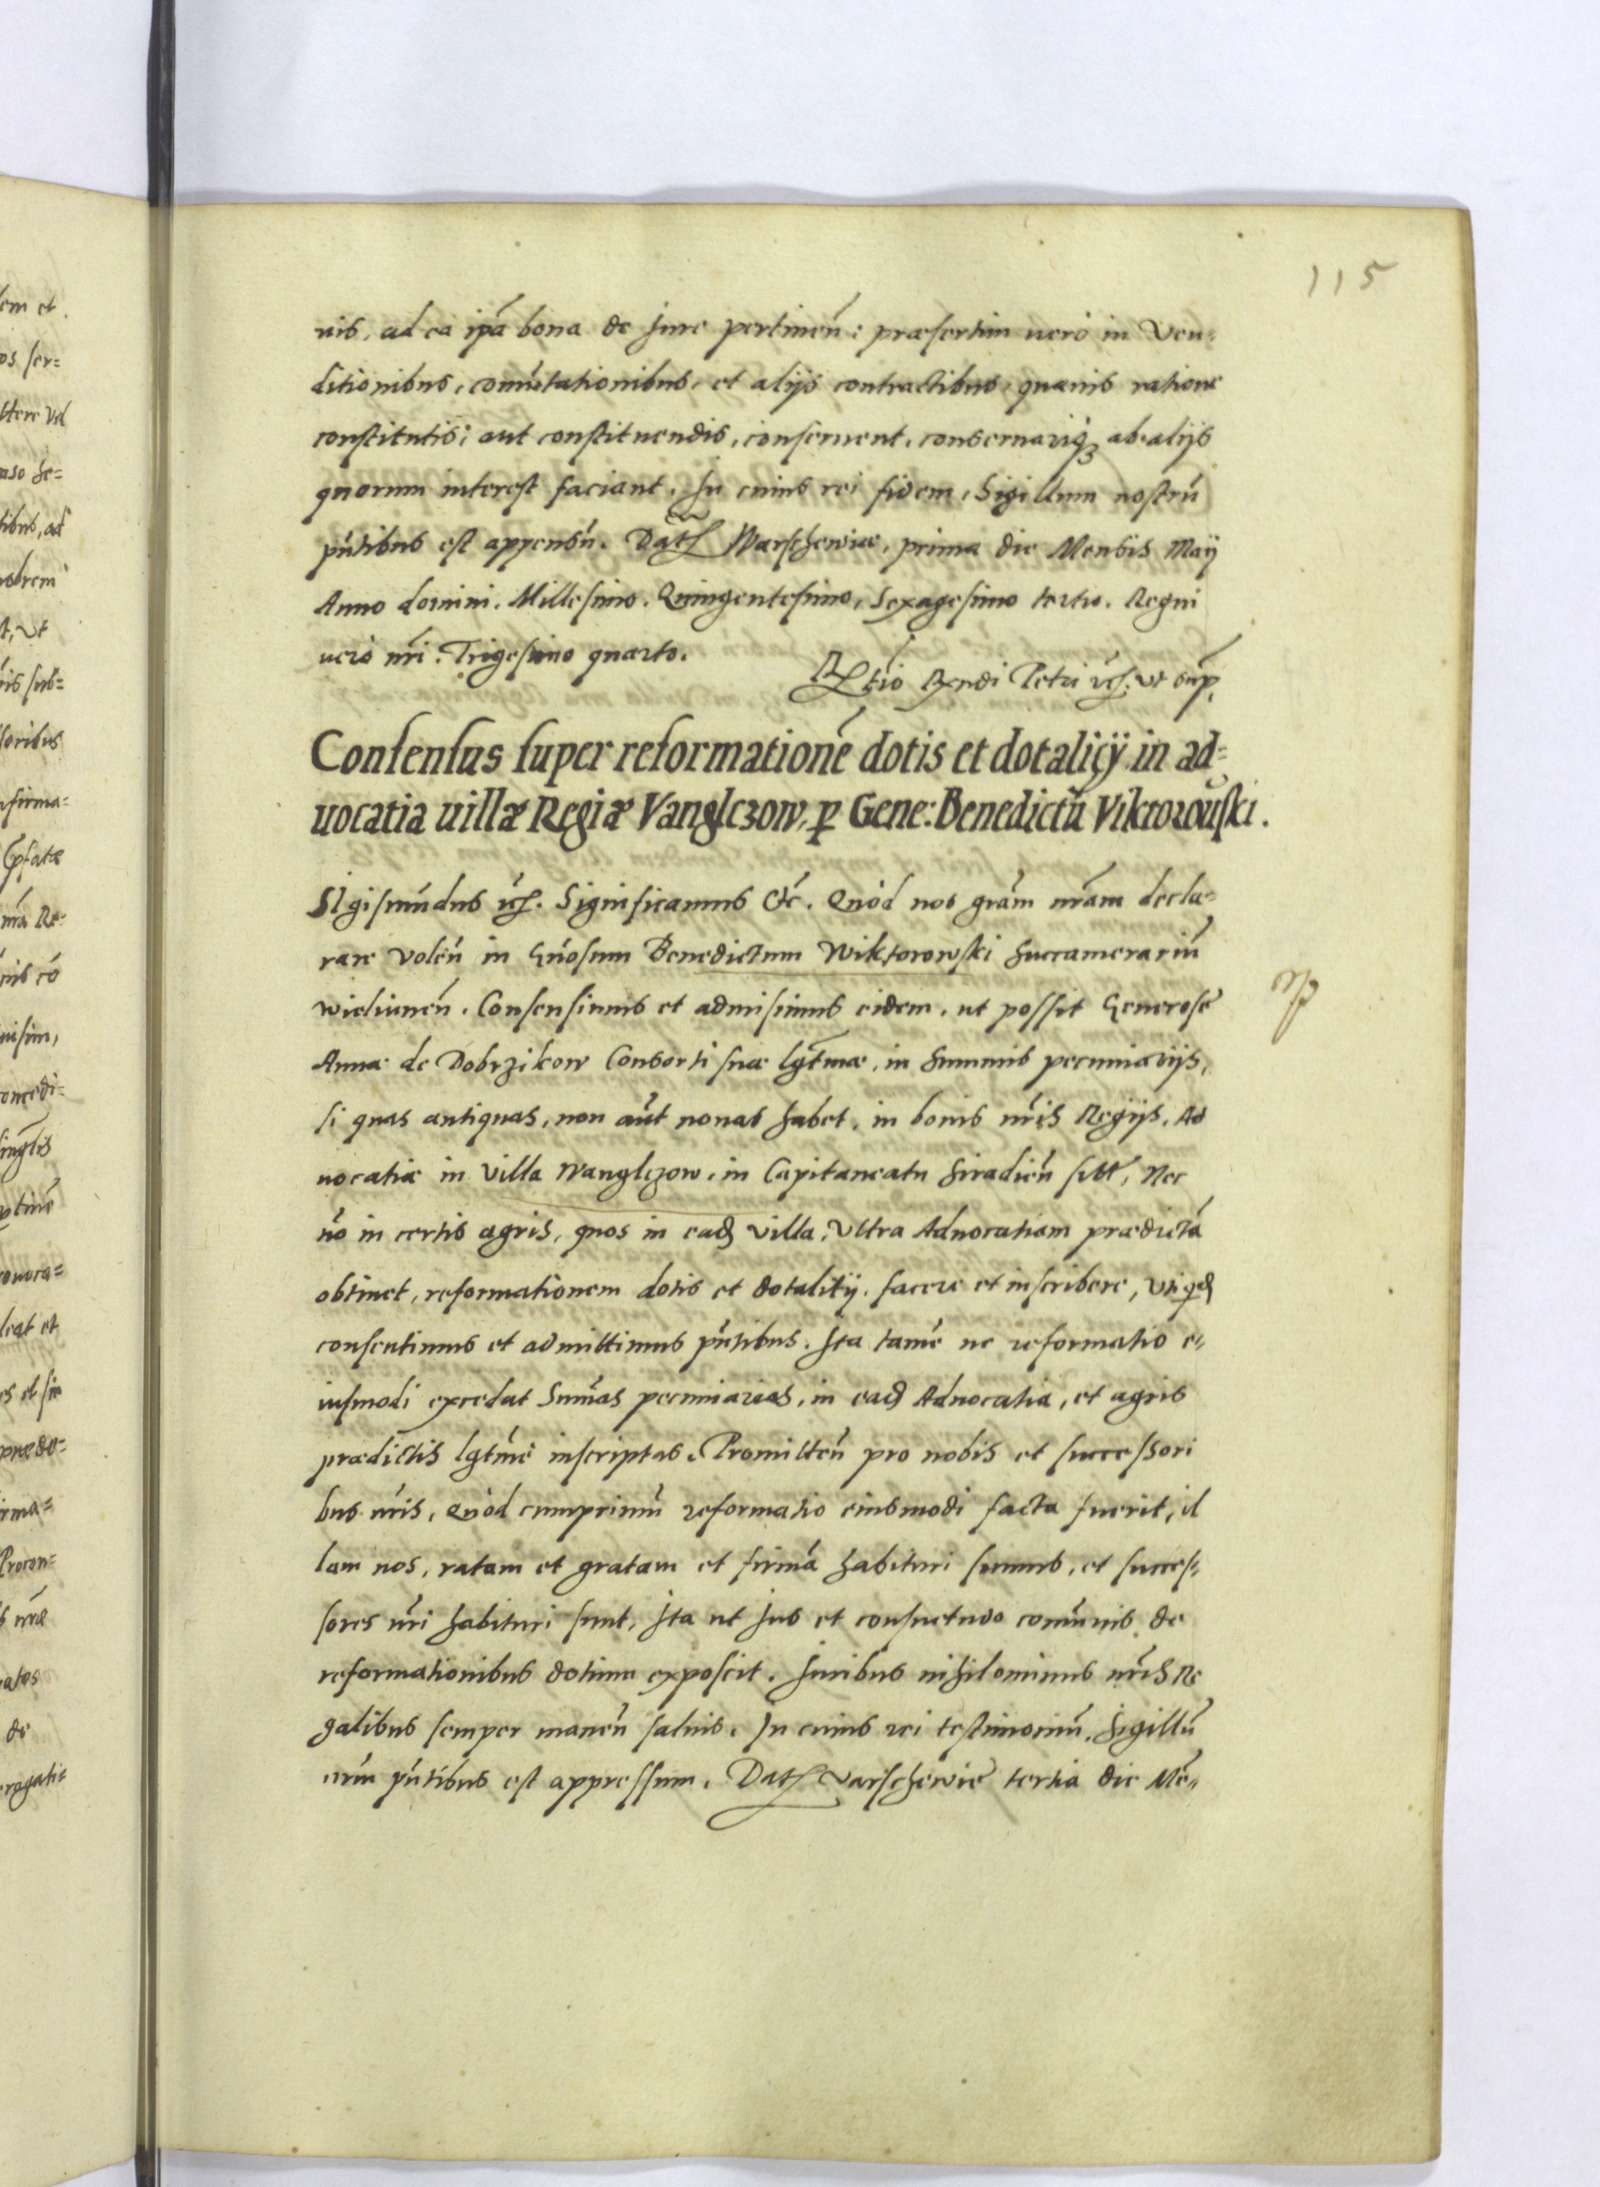 115
uis, ad ea ipā bona de Iure pertineñ: præsertim uerò in Ven-
ditionibus, comūtationibus, et alijs contractibus, quauis ratione
constitutis, aut constituendis, conseruent, conseruariq3 ab alijs
quorum interest faciant. In cuius rei fidem, Sigillum nostrū
pn̄tibus est appensū. Dat̄ Warscheuiæ, prima die Mensis Maij
Anno domini. Millesimo. Quingentesimo, Sexagesimo tertio. Regni
uerò nr̄i. Trigesimo quarto.
Rtio Rndi Petri ut sup
Consensus super reformationē dotis et dotalicij in ad-
uocatia uillæ Regiæ Vanglczow, p Gene: Benedictū Viktorouski.
SIgismūdus Significamus Etc. Quòd nos gr̄am nr̄am decla-
rare Volen̄ in Gn̄osum Benedictum Wiktorowski Succamerariū
Wieliuneñ. Consensimus et admisimus eidem, ut possit Generosę
Annæ de Dobrzikow Consorti suæ lgt̄mæ, in summis pecuniarijs,
si quas antiquas, non aūt nouas habet, in bonis nr̄is Regijs, Ad
uocatiæ in Villa Wanglczow, in Capitaneatu Siradieñ sitt̄, Nec
nō in certis agris, quos in ead Villa, Vltra Aduocatiam prædictā
obtinet, reformationem dotis et dotalitij, facere et inscribere, Vti qd
consentimus et admittimus pn̄tibus. Ita tamē ne reformatio e-
iusmodi excedat Sum̄as pecuniarias, in ead Aduocatia, et agris
prædictis lgt̄mè inscriptas. Promitteñ pro nobis et successori
bus nr̄is, Quòd cumprimū reformatio eiusmodi facta fuerit, il
lam nos, ratam et gratam et firmā habituri sumus, et succes-
sores nr̄i habituri sunt, Ita ut Ius et consuetudo comūnis de
reformationibus dotium exposcit. Iuribus nihilominus nr̄is Re
galibus semper maneñ saluis. In cuius rei testimoniū, Sigillū
nr̄m pn̄tibus est appressum. Dat̄ Varscheuię tertia die Mē-